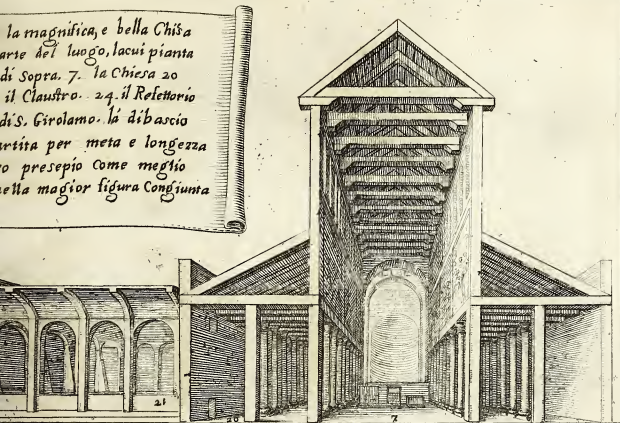 la magnifica, e bella Chisa
arte del luogo, lacui pianta
di Sopra. 7. la Chiesa 20
il Claustro. 24. il Refettorio
di S. Girolamo. lá dibascio
artita per meta e longezza
o presepio Come meglio
ella magior figura Congiunta
21
20
7